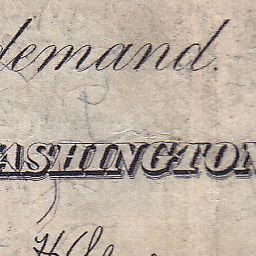 demand.
WASHINGTON